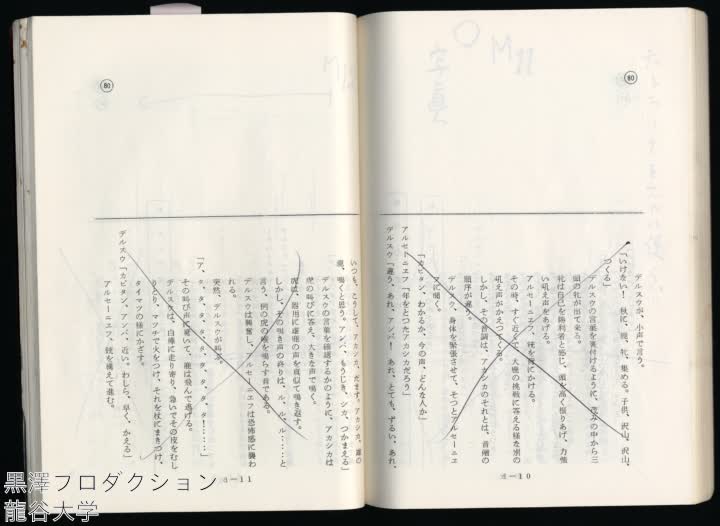 80
M22
写真
デルスウが、小声で言う。
「いけない! 秋に、鹿、牝、集める。子供、沢山、沢山、
つくる」
デルスウの言葉を裏付けるように、茂みの中から三
頭の牝が出て来る。
牡は自己を勝利者と感じ、頭を高く振りあげ、力強
い吼え声をあげる。
アルセーニエフ、銃を肩にかける。
その時、すぐ近くで、大鹿の挑戦に答える様な別の
吼え声がきえてくる。
しかし、その音調は、アカシカのそれとは、音階の
順序が違う。
デルスウ、身体を緊張させて、そっとアルセーニエ
フに囁く。
「カピタン、わかるか、今の声、どんな人か」
アルセーニエフ「年をとったアカシカだろう」
デルスウ「違う、あれアンバ! あれ、とても、ずるい、あれ、
8—10
80
いつも、こうして、アカシカ、だます。アカシカ、雄の
鹿、鳴くと思う。アンバ、もうじき、シカ、つかまえる」
デルスウの言葉を確認するかのように、アカシカは
虎の叫びに答え、大きな声で鳴く。
虎は、器用に雄鹿の声を真似て鳴き返す。
しかし、その鳴き声の終りは、ル、ル、ル‥‥と
言う、例の虎の喉を鳴らす音である。
デルスウは興奮し、アルセーニエフは恐怖感に襲わ
れる。
突然、デルスウが叫ぶ。
「ア、タ、タ、タ、タ、タ、タ、タ!‥‥」
その叫び声に驚いて、鹿は飛んで逃げる。
デルスは、白樺に走り寄り、急いでその皮をむし
りとり、マツチで火をつけ、それを杖にまきつけ、
タイマツの様にかざす。
デルスウ「カピタン、アンバ、近い、わしら、早く、かえる」
アルセーニエフ、銃を構えて進む。
8—11
黒澤プロダクション
龍谷大学